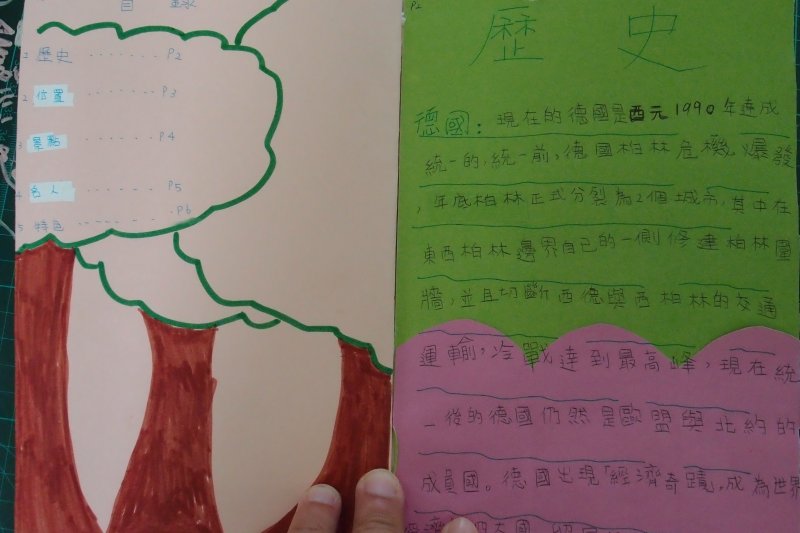 目 錄
1 歷史 ‧‧‧‧‧‧‧ P2
2 位置 ‧‧‧‧‧‧‧ P3
3 景點 ‧‧‧‧‧‧‧ P4
4 名人 ‧‧‧‧‧‧‧ P5
5 特色 ‧‧‧‧‧‧‧ P6
P2
歷 史
德國：現在的德國是西元1990年達成
統一的,統一前，德國柏林危機爆發
，年底柏林正式分裂為2個城市,其中在
東西柏林邊界自己的一側修建柏林圍
牆，並且切斷西德與西柏林的交通
運輸，冷戰達到最高峰，現在統
一後的德國仍然是歐盟與北約的
成員國。德國出現「經濟奇蹟」,成為世界